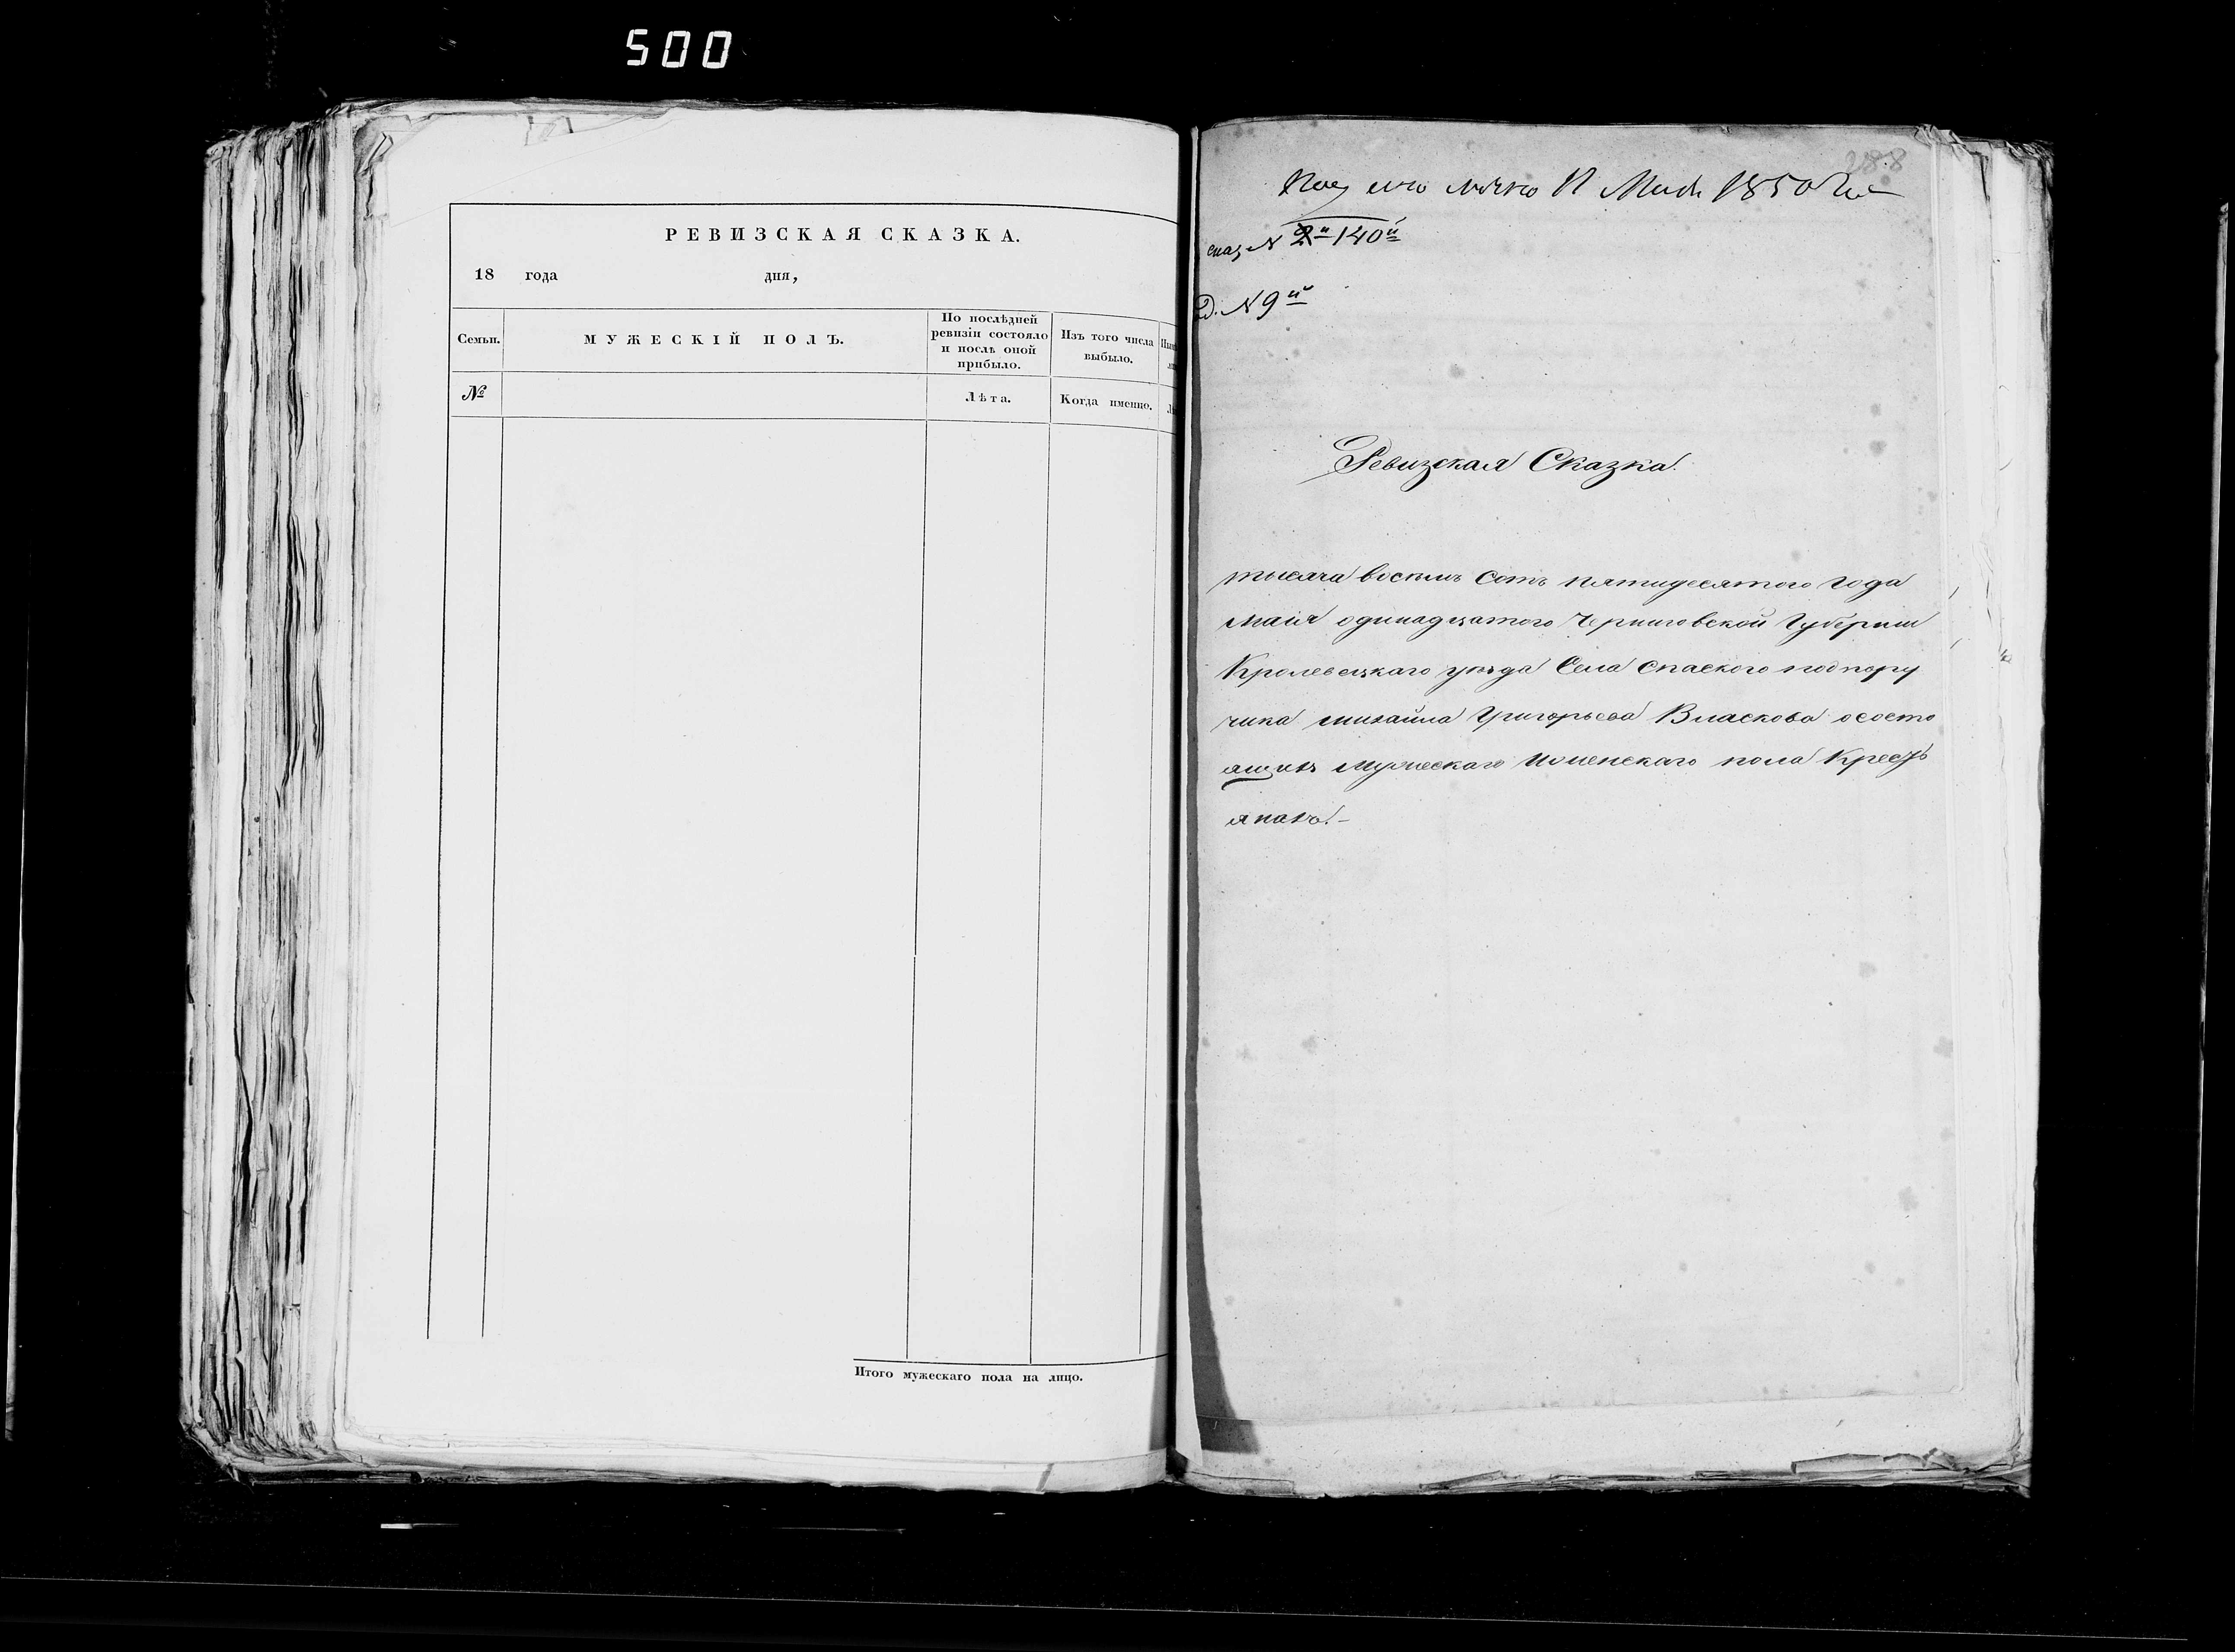 500
РЕВИЗСКАЯ СКАЗКА.
18 года дня,
Семьи.
МУЖЕСКІЙ ПОЛЪ.
По послѣдней
ревизіи состояло
и послѣ оной
прибыло.
Изъ того числа
выбыло.
№
Лѣта.
Когда именно.
Итого мужескаго пола на лицо.
288
11 Маія 1850
сказ. N 2й 140й
N 9й
Ревизская Сказка.
тысяча восемь сотъ пятидесятого года
маія одинадцатого Черниговской Губерніи
Кролевецкаго уезда Села Спаского подпору
чика михайла Григорьева Власкова о состо
ящихъ мужескаго и женскаго пола Кресть
янахъ.-